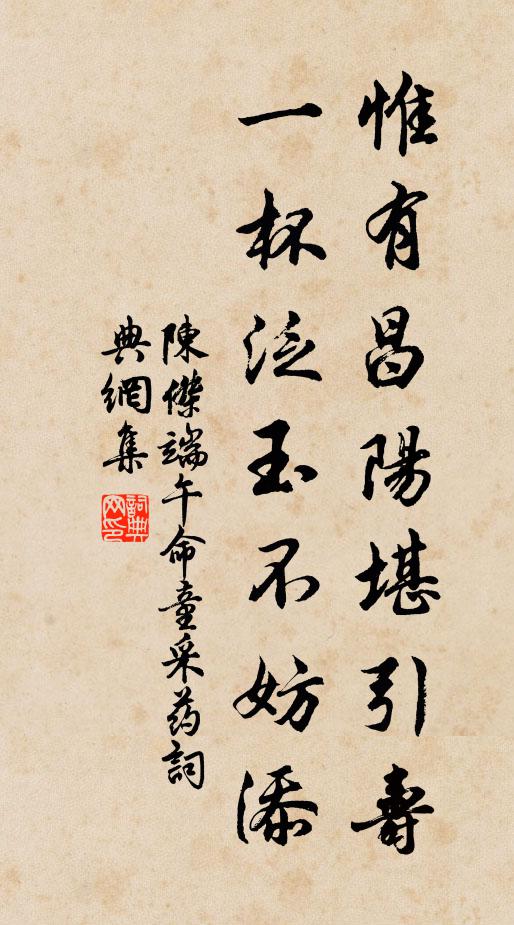 惟有昌陽堪引壽
一杯泛玉不妨添
陳傑端午命童采药詞
典網集
詞典網印